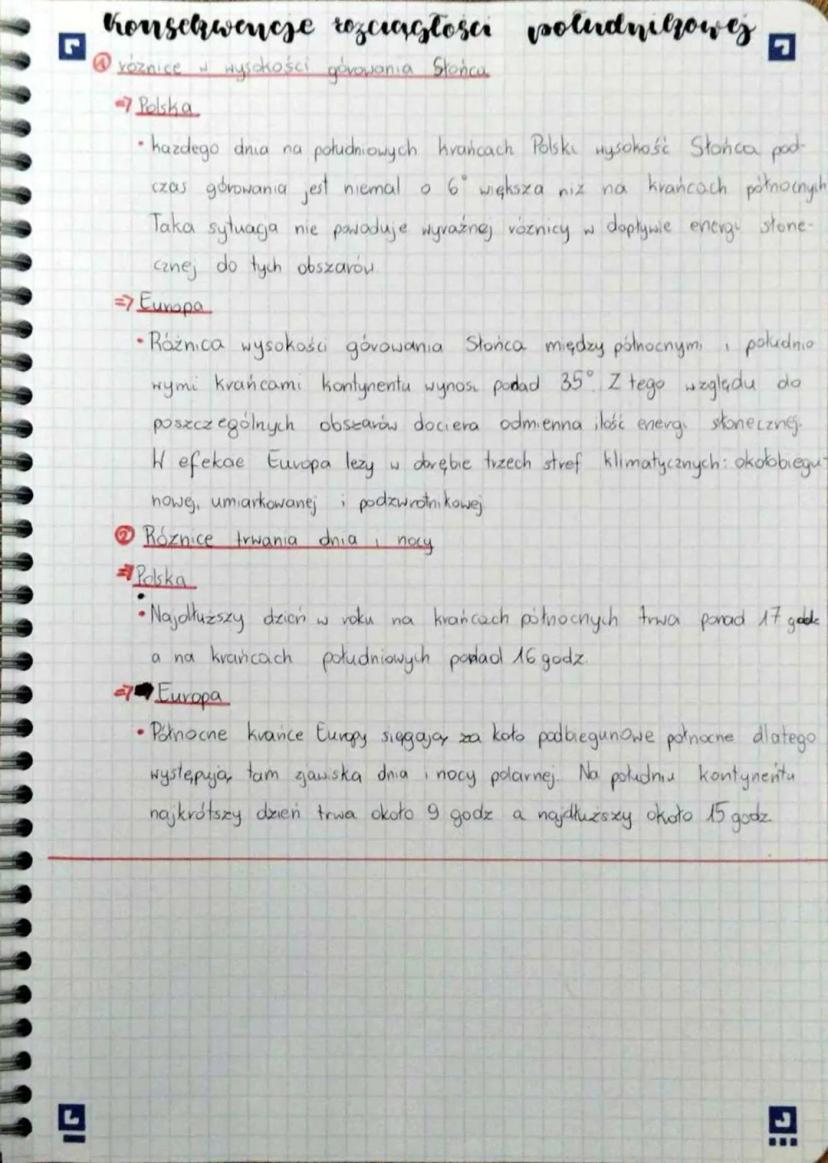 Konsekwencje rozciągłości południkowej
① różnice w wysokości górowania Słońca
=> Polska
• każdego dnia na południowych krańcach Polski wysokość Słońca pod-
czas górowania jest niemal o 6° większa niż na krańcach północnych
Taka sytuacja nie powoduje wyraźnej różnicy w dopływie energii słone-
cznej do tych obszarów
=> Europa
• Różnica wysokości górowania Słońca między północnymi i południo
wymi krańcami kontynentu wynosi ponad 35° Z tego względu do
poszczególnych obszarów dociera odmienna ilość energi słonecznej.
W efekcie Europa leży w obrębie trzech stref klimatycznych: okołobiegu-
nowej, umiarkowanej i podzwrotnikowej
② Różnice trwania dnia i nocy
=> Polska
• Najdłuższy dzień w roku na krańcach północnych trwa ponad 17 godz
a na krańcach południowych ponad 16 godz.
=> Europa
• Północne krańce Europy sięgają za koło podbiegunowe północne dlatego
występują tam zjawiska dnia i nocy polarnej. Na południu kontynentu
najkrótszy dzień trwa około 9 godz a najdłuższy około 15 godz